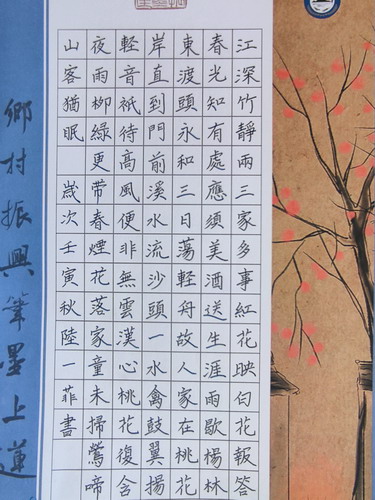 江深竹靜兩三家多事紅花映白花報答
春光知有處應須美酒送生涯雨歇楊林
東渡頭永和三日蕩輕舟故人家在桃花
岸直到門前溪水流沙頭一水禽鼓翼揚
輕音祇待高風便非無雲漢心桃花復含
夜雨柳綠更帶春煙花落家童未掃鶯啼
山客猶眠 歲次壬寅秋陸一菲書
鄉村振興筆墨上蓮